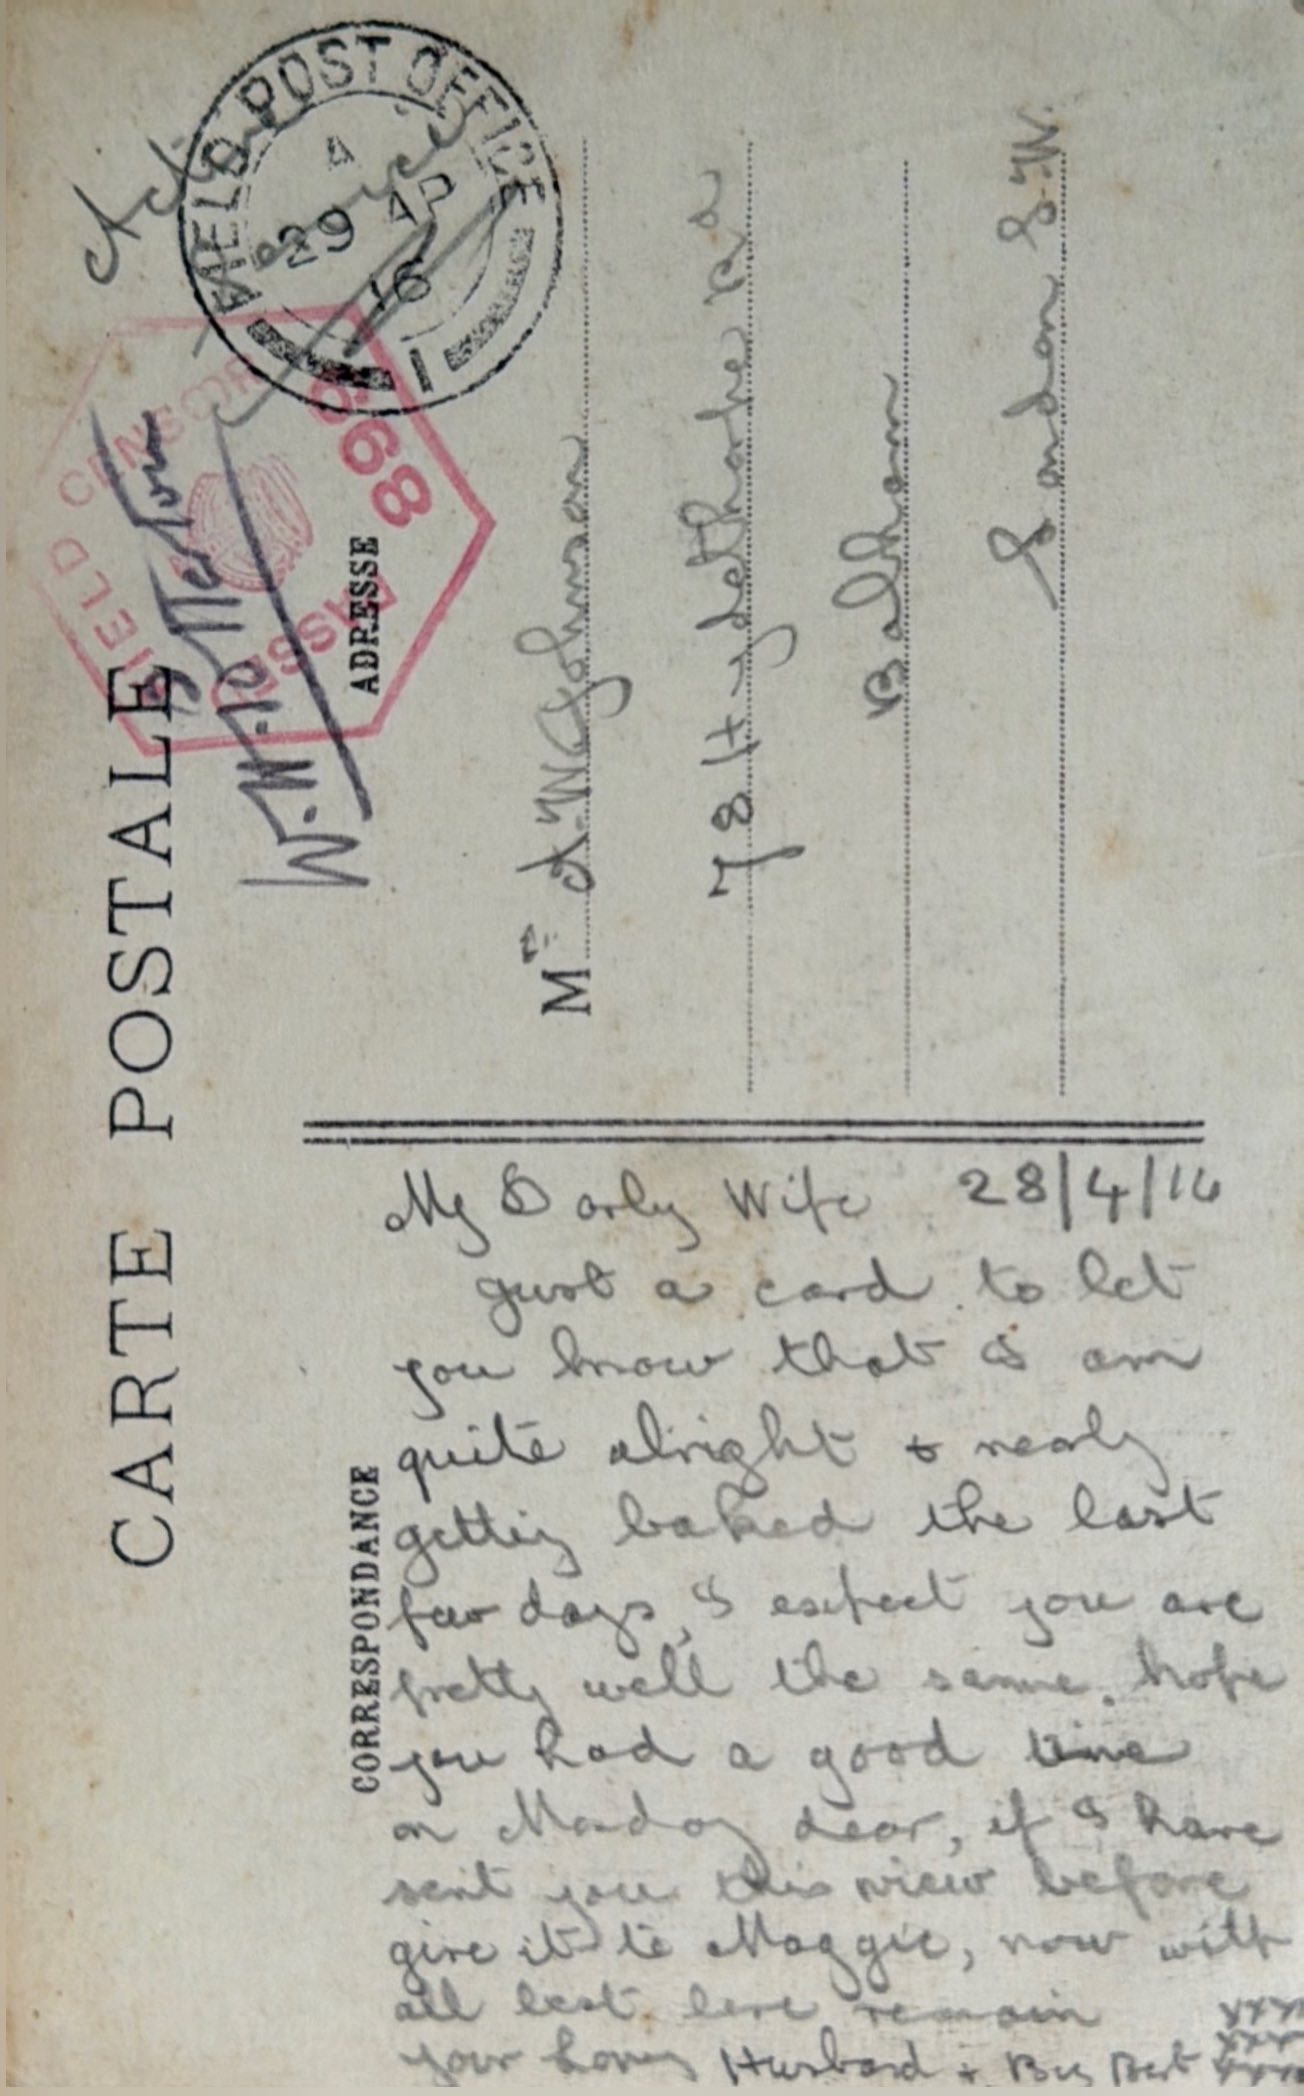 CARTE POSTALE
Active
Service
FIELD POST OFFICE
A
29 AP
16
1
PASSED FIELD CENSOR
868
ADRESSE
M rs A. W Johnson
78 Hydethorpe Rd
Balham
London S.W.
CORRESPONDANCE
My Darlg Wife 28/4/16
Just a card to let
you know that I am
quite alright & nearly
gettig baked the last
few days, I expect you are
pretty well the same. hope
you had a good time
on Monday dear, if I have
sent you this view before
give it to Maggie, now with
all best love remain
your Loving Husband & Boy Bert xxxx
xxxx
xxxx